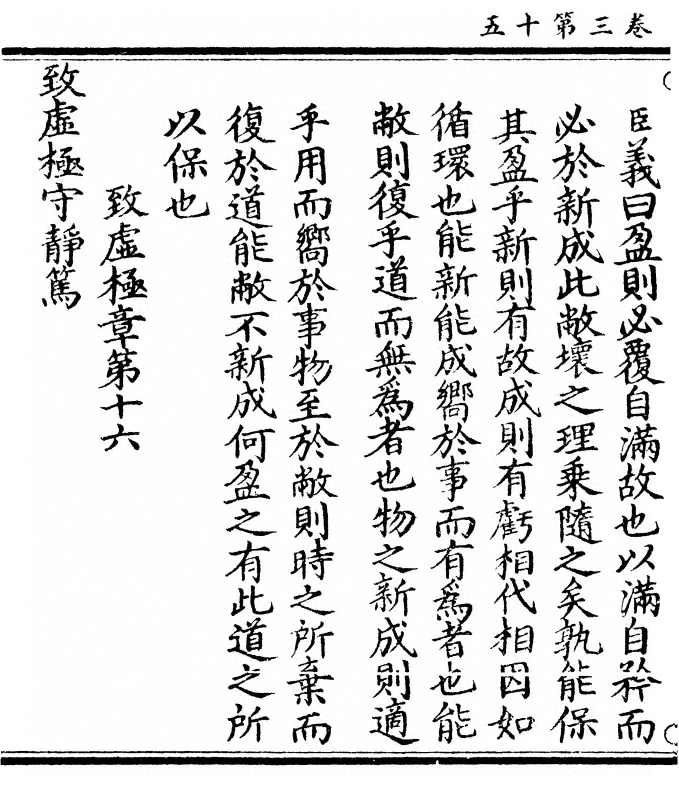 卷三第十五
臣義曰盈則必覆自滿故也以滿自矜而
必於新成此敝壞之理乗隨之矣孰能保
其盈乎新則有故成則有虧相代相因如
循環也能新能成嚮於事而有爲者也能
敝則復乎道而無爲者也物之新成則適
乎用而嚮於事物至於敝則時之所棄而
復於道能敝不新成何盈之有此道之所
以保也
致虛極章第十六
致虛極守靜篤